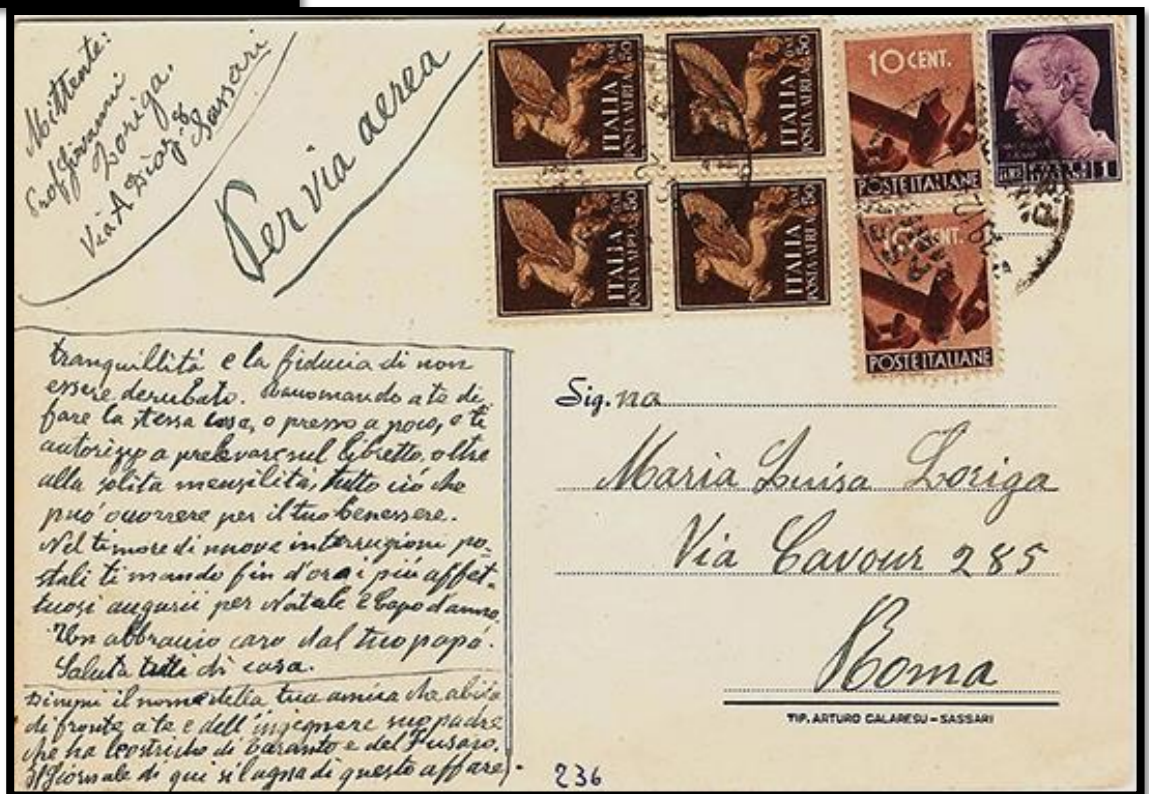 Mittente:
Prof Giovanni
Loriga.
Via A Diaz 8
Sassari
Per via aerea
ITALIA
POSTA AEREA
50
ITALIA
POSTA AEREA
50
ITALIA
POSTA AEREA
50
ITALIA
POSTA AEREA
50
10 CENT.
POSTE ITALIANE
10 CENT.
POSTE ITALIANE
LIRE 1
tranquillitá e la fiducia di non
essere derubato. a te di
fare la stessa cosa, o presso a poco, e ti
autorizzo a prelevare sul libretto, oltre
alla solita mensilitá, tutto ció che
puó occorrere per il tuo benessere.
Nel timore di nuove interruzioni po-
stali ti mando fin d'ora i piú affet-
tuosi augurii per Natale e Capo d'anno.
Un abbraccio caro dal tuo papá.
Saluta tutti di casa.
Dimmi il nome della tua amica che abita
di fronte a te e dell'ingegnere suo padre
che ha di Taranto e del Fusaro.
Il Giornale di qui si lagna di questo affare.
Sig.na
Maria Luisa Loriga
Via Cavour 285
Roma
TIP. ARTURO CALARESU - SASSARI
236